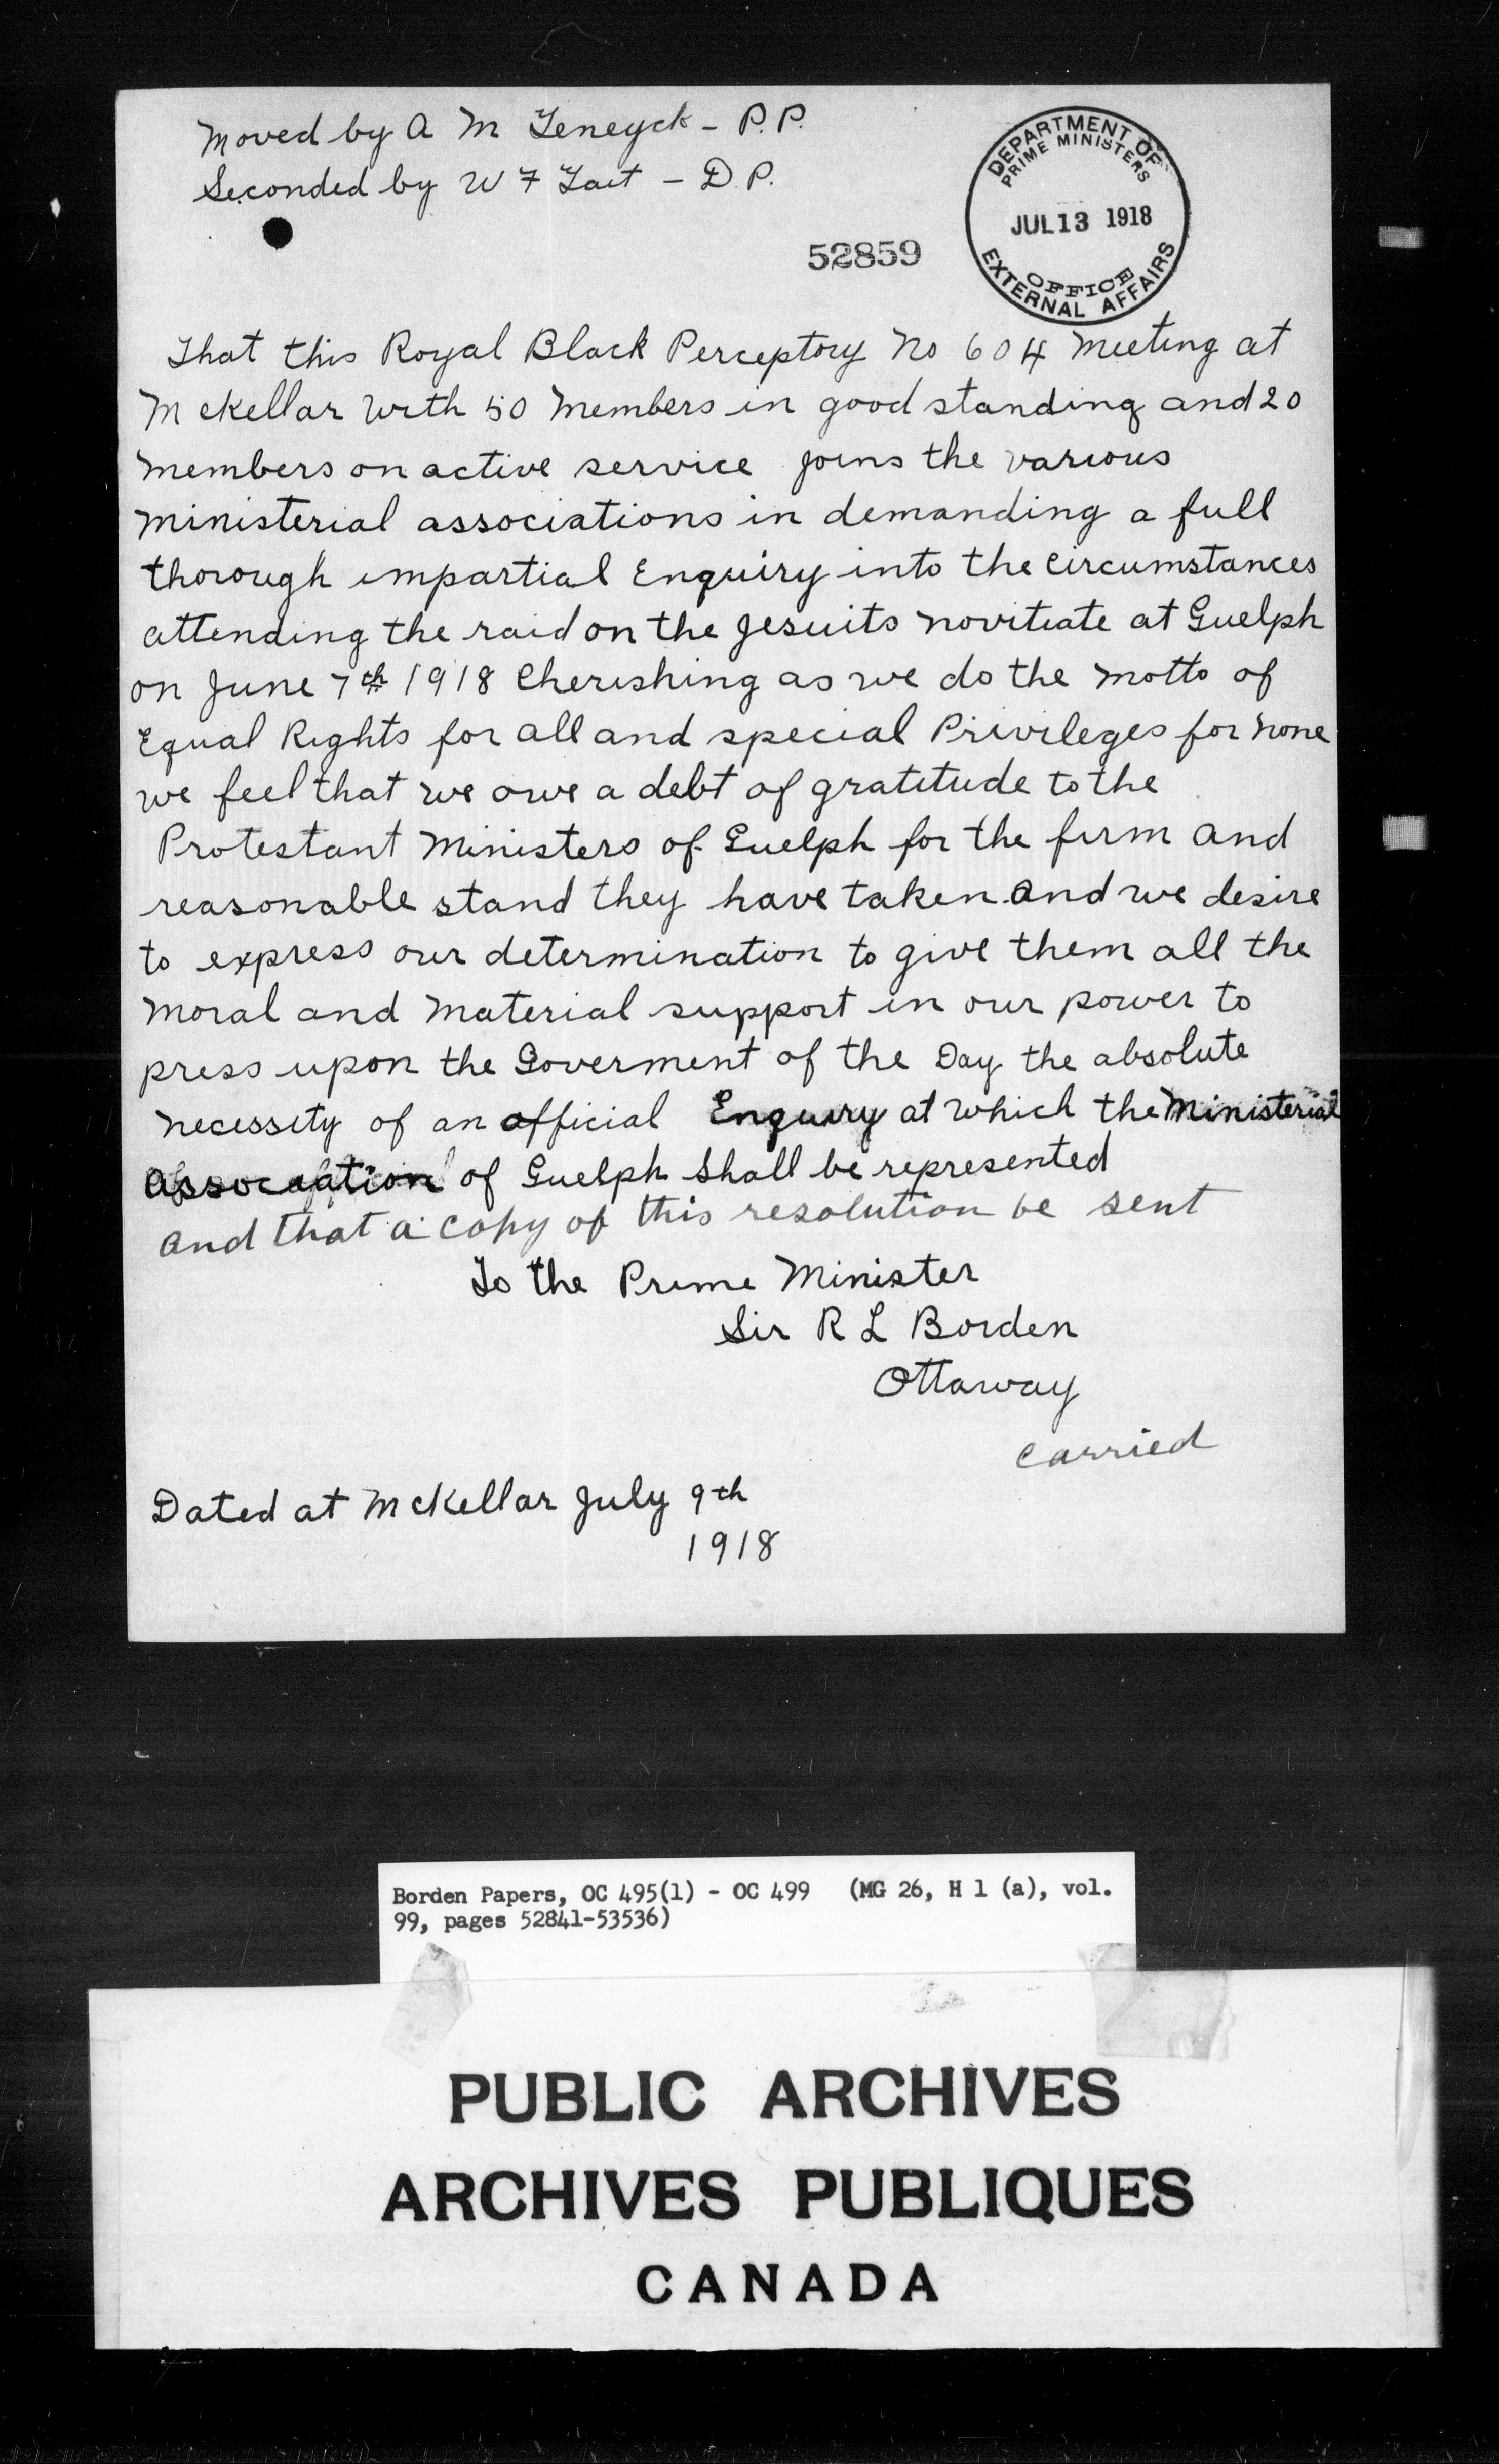 Moved by A M Teneyck - P.P.
Seconded by W F Tait - D.P.
DEPARTMENT OF
PRIME MINISTERS
JUL 13 1918
OFFICE
EXTERNAL AFFAIRS
52859
That this Royal Black Perceptory No 604 Meeting at
McKellar with 50 Members in good standing and 20
Members on active service joins the various
Ministerial associations in demanding a full
thorough impartial Enquiry into the circumstances
attending the raid on the Jesuits Novitiate at Guelph
on June 7th 1918 Cherishing as we do the Motto of
Equal Rights for all and special Privileges for None
we feel that we owe a debt of gratitude to the
Protestant Ministers of Guelph for the firm and
reasonable stand they have taken. And we desire
to express our determination to give them all the
Moral and Material support in our power to
press upon the Goverment of the Day the absolute
Necessity of an official Enquiry at which the Ministerial
Association of Guelph shall be represented
and that a copy of this resolution be sent
To the Prime Minister
Sir R L Borden
Ottaway
Carried
Dated at McKellar July 9th
1918
Borden Papers, OC 495(1) - OC 499 (MG 26, H 1 (a), vol.
99, pages 52841-53536)
PUBLIC ARCHIVES
ARCHIVES PUBLIQUES
CANADA